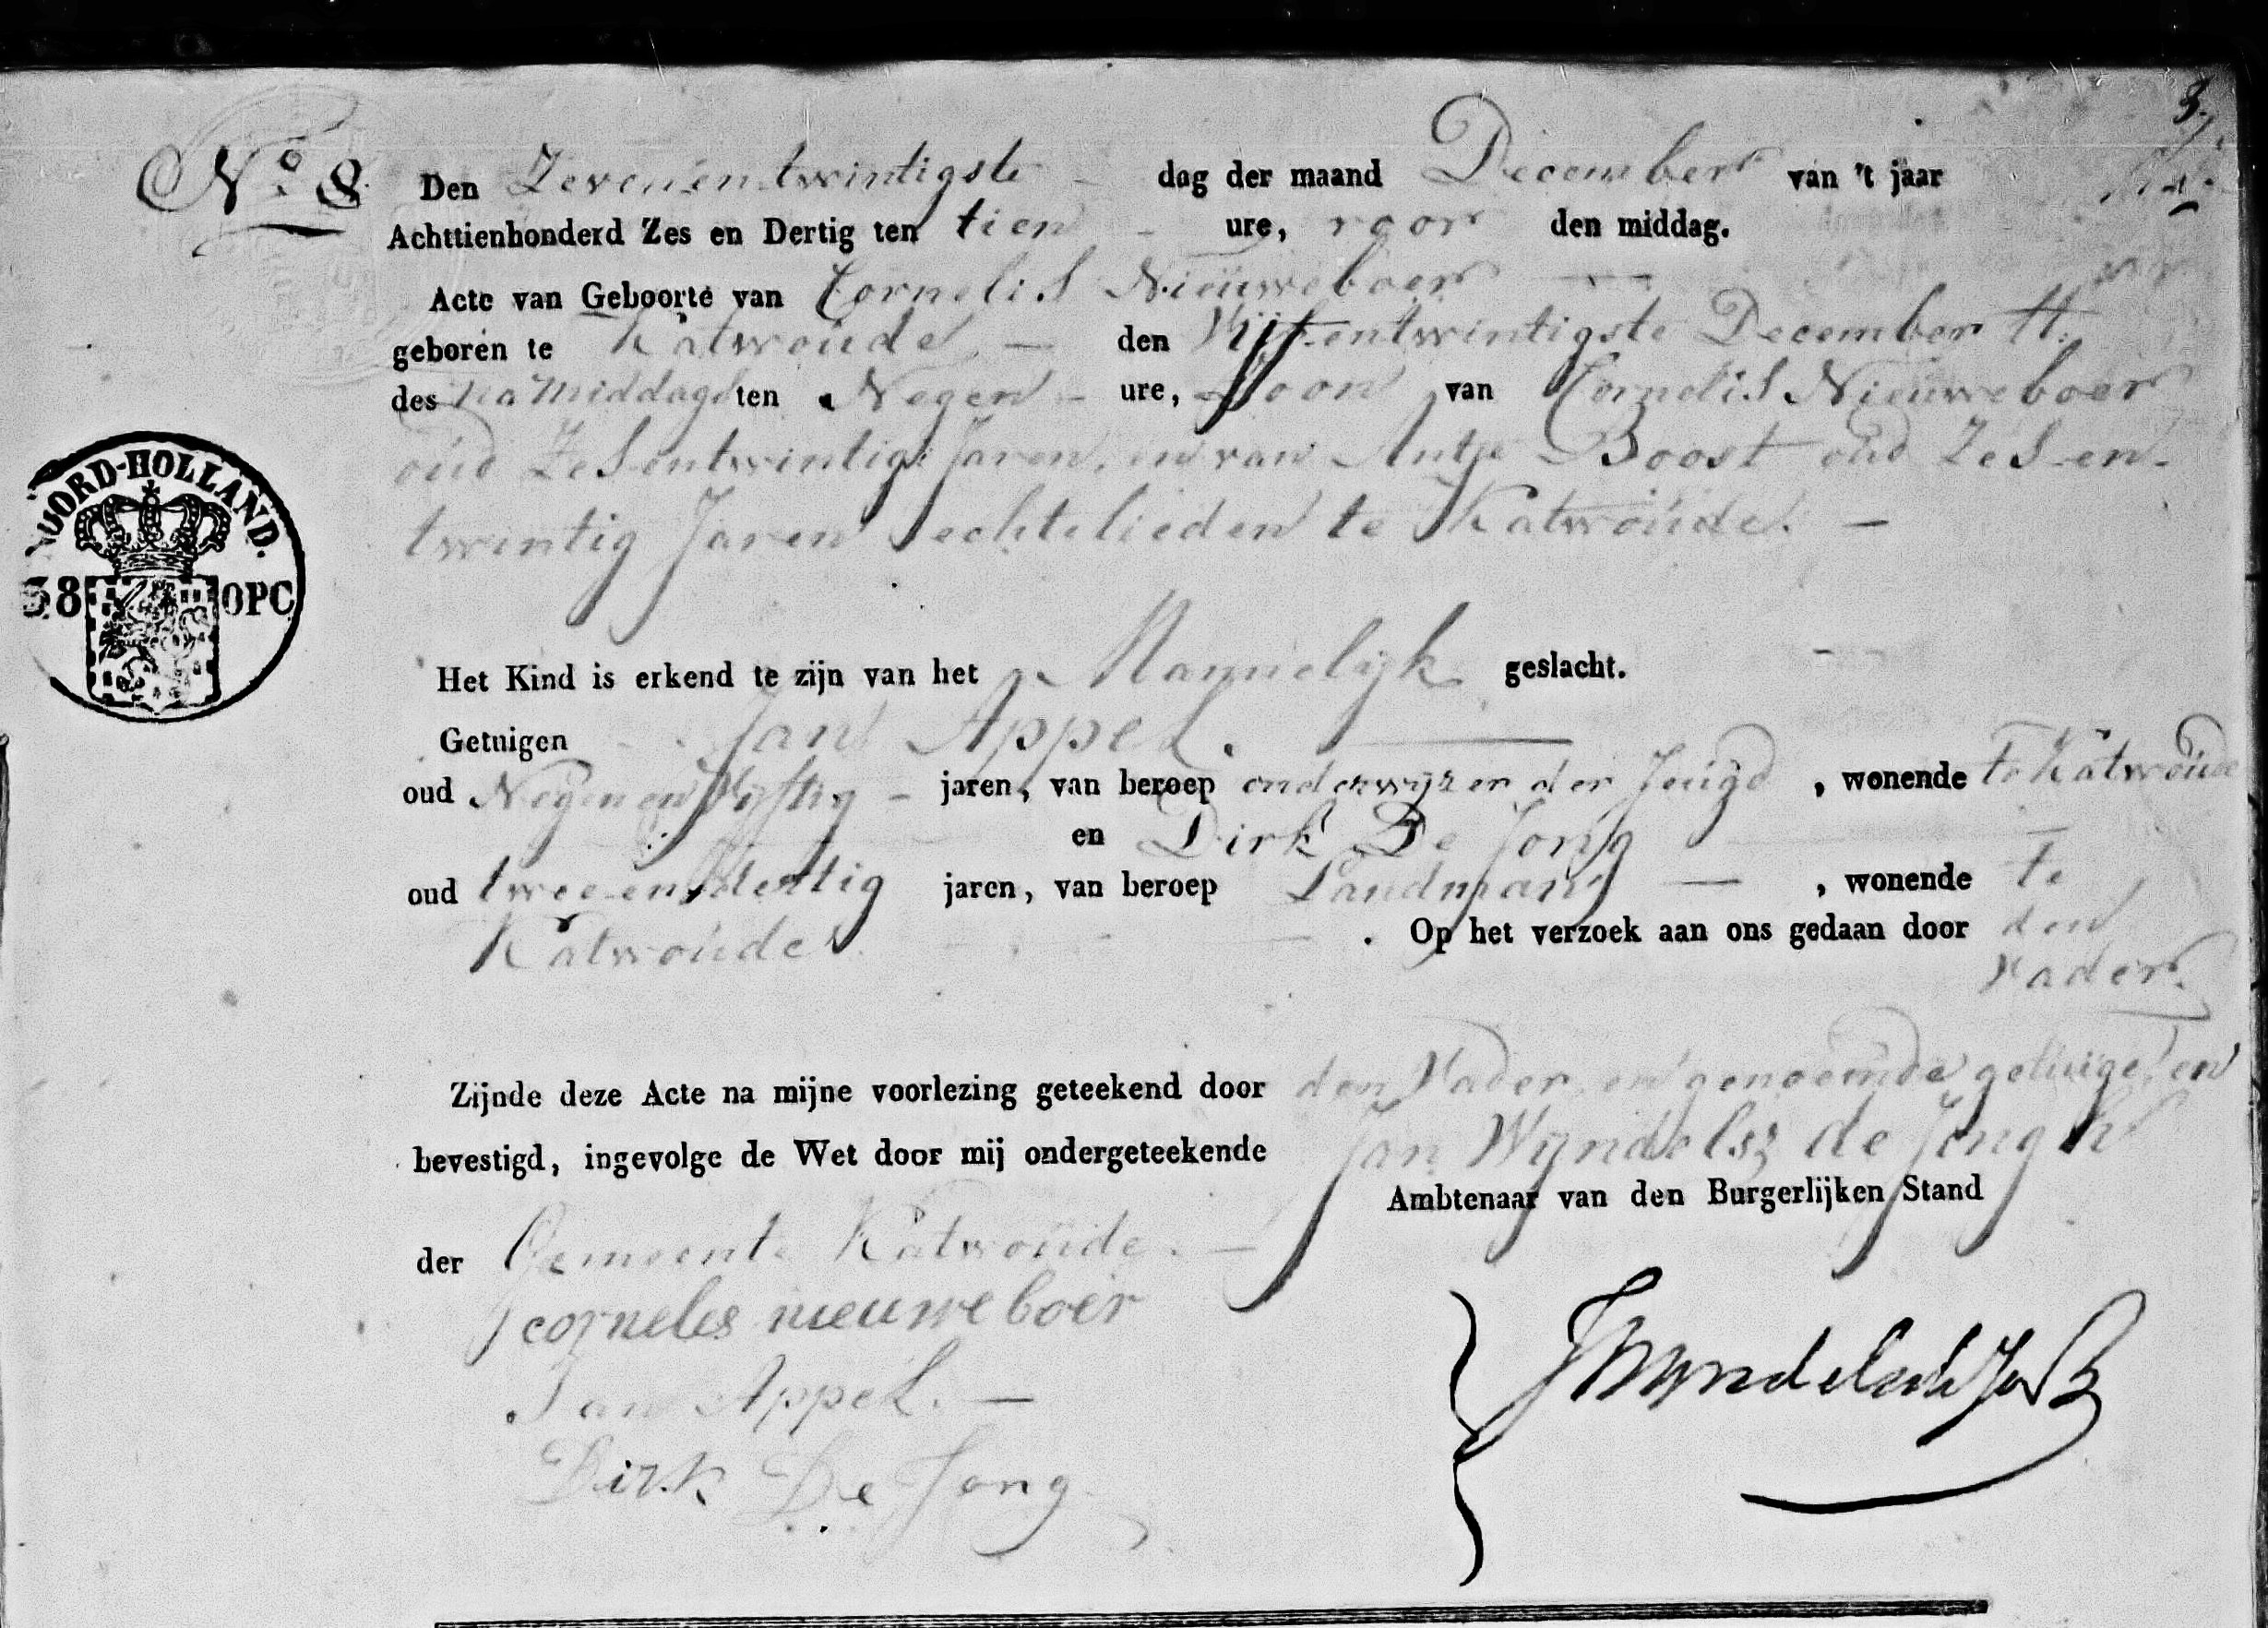 3.
No. 8. Den Zevenentwintigste – dag der maand December van 't jaar
Achttienhonderd Zes en Dertig ten tien – ure, voor den middag.
Acte van Geboorte van Cornelis Nieuweboer —
geboren te Katwoude — den Vijfentwintigste December ll.
des namiddags ten Negen – ure, Zoon van Cornelis Nieuweboer
oud Zes-entwintig Jaren, en van Antje Boost oud Zes-en-
twintig Jaren echtelieden te Katwoude. —
NOORD-HOLLAND.
38 OPC
Het Kind is erkend te zijn van het Mannelijk geslacht.
Getuigen Jan Appel. —
oud Negenenvijftig – jaren, van beroep onderwijzer der Jeugd , wonende te Katwoude
en Dirk De Jong —
oud twee-en-dertig jaren, van beroep Landman — , wonende te
Katwoude . Op het verzoek aan ons gedaan door den
Vader.
Zijnde deze Acte na mijne voorlezing geteekend door den Vader, en genoemde getuigen, en
bevestigd, ingevolge de Wet door mij ondergeteekende Jan Wyndelsz de Jongh
Ambtenaar van den Burgerlijken Stand
der Gemeente Katwoude. —
corneles nieuweboer
Jan Appel. —
Dirk De Jong